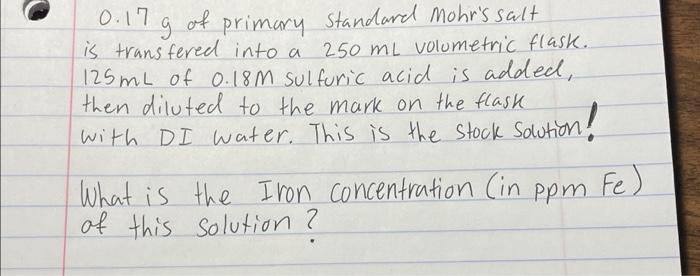 0.17 g of primary standard Mohr's salt
is transfered into a 250 mL volumetric flask.
125mL of 0.18M sulfuric acid is added,
then diluted to the mark on the flask
with DI water. This is the stock solution!
What is the Iron concentration (in ppm Fe)
of this solution?